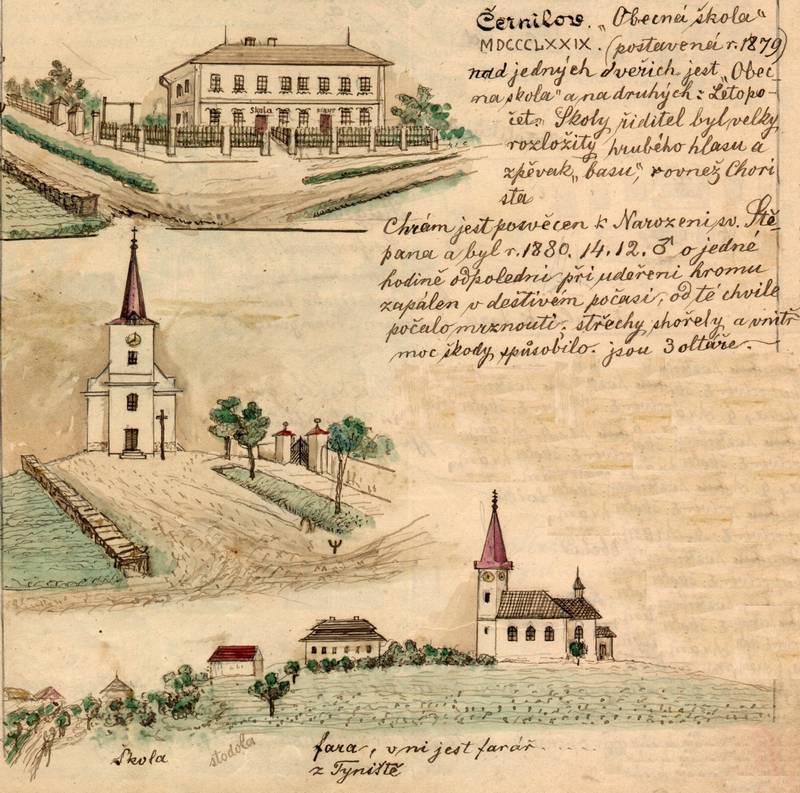 Černilov. „Obecná škola“
MDCCCLXXIX. (postavená r. 1879)
nad jedných dveřich jest „Obec-
na škola“ a na druhých: Letopo-
čet. Školy řiditel byl velky
rozložitý hrubého hlasu a
zpěvak „basu“, rovnež Chori
sta
Škola
Chrám jest posvěcen k Narozeni sv. Ště-
pana a byl r. 1880. 14. 12. ♂ o jedné
hodině odpoledni při udeřeni hromu
zapálen v deštivém počasi, od té chvile
počalo mrznouti. střechy shořely a vnitř
moc škody spůsobilo. jsou 3 oltáře.
Škola stodola fara, v ni jest farář
z Tyniště